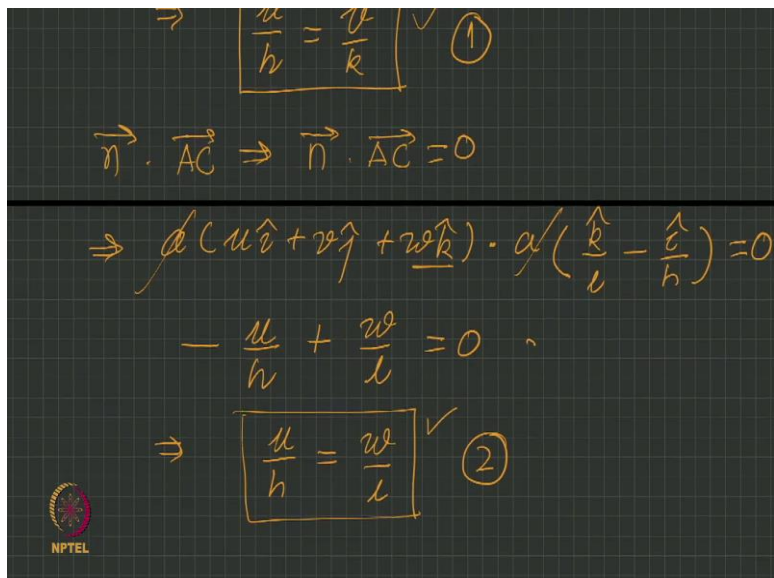 ⇒ u/h = v/k ✓ ①
n⃗ . A⃗C⃗ ⇒ n⃗ . A⃗C⃗ = 0
⇒ a(uî + vĵ + wk̂) · a(k̂/l − î/h) = 0
− u/h + w/l = 0
⇒ u/h = w/l ✓ ②
NPTEL